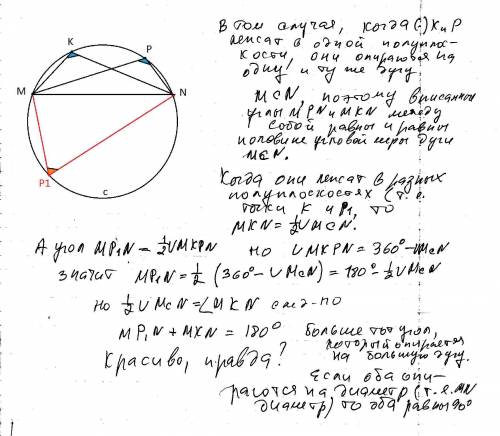 K
P
M
N
P1
c
В том случая, когда (·) K и P
лежат в одной полуплос-
кости, они опираются на
одну и ту же дугу
McN, поэтому вписанные
углы MPN и MKN между
собой равны и равны
половине угловой меры дуги
McN.
Когда они лежат в разных
полуплоскостях (т.е.
точки K и P₁, то
MKN = ½ ∪ McN.
А угол MP₁N = ½ ∪ MKPN но ∪ MKPN = 360° - ∪McN
значит MP₁N = ½ (360° - ∪ McN) = 180° - ½ ∪ McN
но ½ ∪ McN = ∠MKN след-но
MP₁N + MKN = 180° больше тот угол,
который опирается
на большую дугу.
Красиво, правда?
Если оба опи-
раются на диаметр (т.е. MN
диаметр) то оба равны 90°